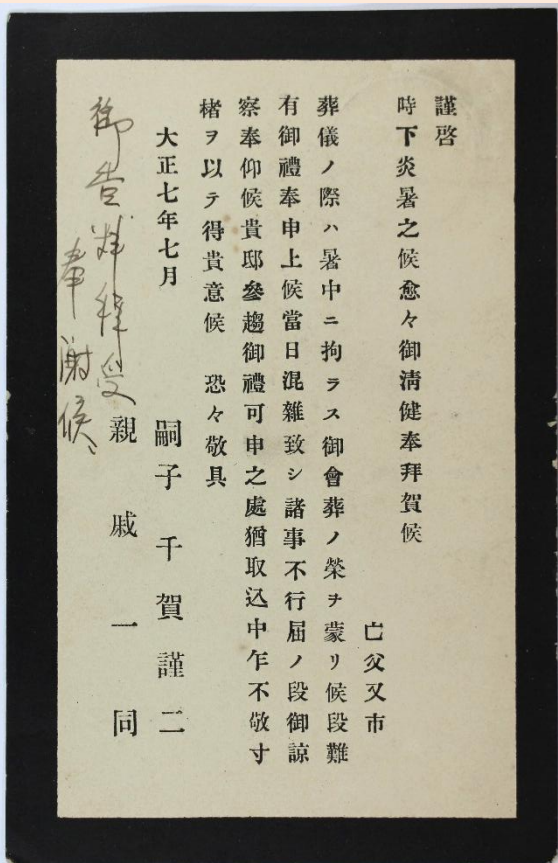 謹啓
時下炎暑之候愈々御淸健奉拜賀候
亡父又市
葬儀ノ際ハ暑中ニ拘ラス御會葬ノ榮ヲ蒙リ候段難
有御禮奉申上候當日混雜致シ諸事不行屆ノ段御諒
察奉仰候貴邸參趨御禮可申之處猶取込中乍不敬寸
楮ヲ以テ得貴意候　恐々敬具
大正七年七月
嗣子　千賀謹二
親戚一同
御吿
奉謝候